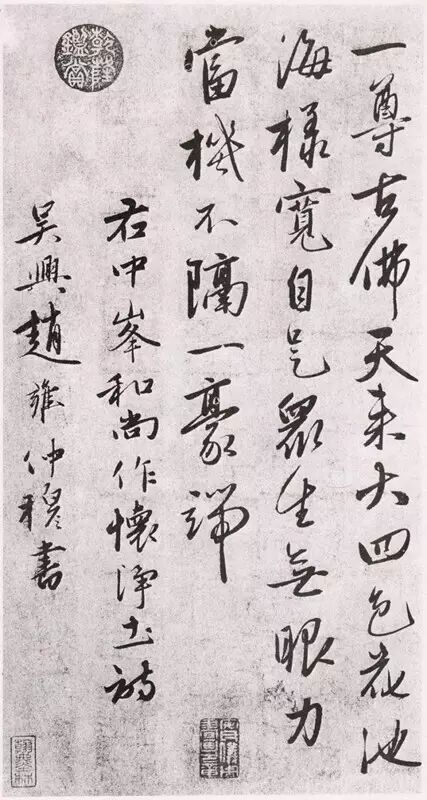 一尊古佛天来大四色花池
海樣寬自是眾生無眼力
當機不隔一豪端
右中峯和尚作懷淨土詩
吳興趙雍仲穆書
乾隆鑑賞